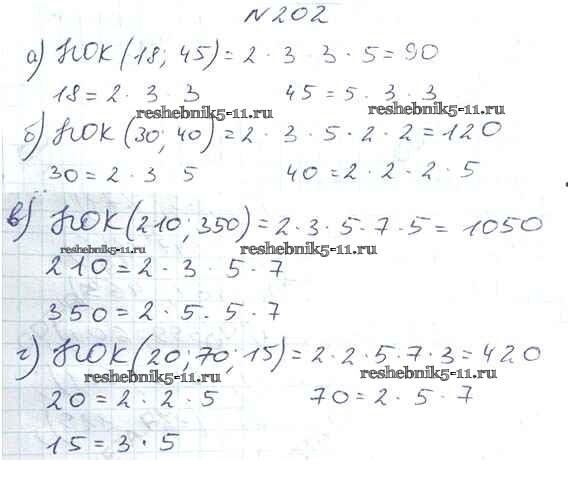 N 202
а) НОК (18; 45) = 2 · 3 · 3 · 5 = 90
18 = 2 · 3 · 3 45 = 5 · 3 · 3
reshebnik5-11.ru reshebnik5-11.ru
б) НОК (30; 40) = 2 · 3 · 5 · 2 · 2 = 120
30 = 2 · 3 5 40 = 2 · 2 · 2 · 5
в) НОК (210; 350) = 2 · 3 · 5 · 7 · 5 = 1050
reshebnik5-11.ru reshebnik5-11.ru
210 = 2 · 3 · 5 · 7
350 = 2 · 5 · 5 · 7
г) НОК (20; 70; 15) = 2 · 2 · 5 · 7 · 3 = 420
reshebnik5-11.ru reshebnik5-11.ru
20 = 2 · 2 · 5 70 = 2 · 5 · 7
15 = 3 · 5